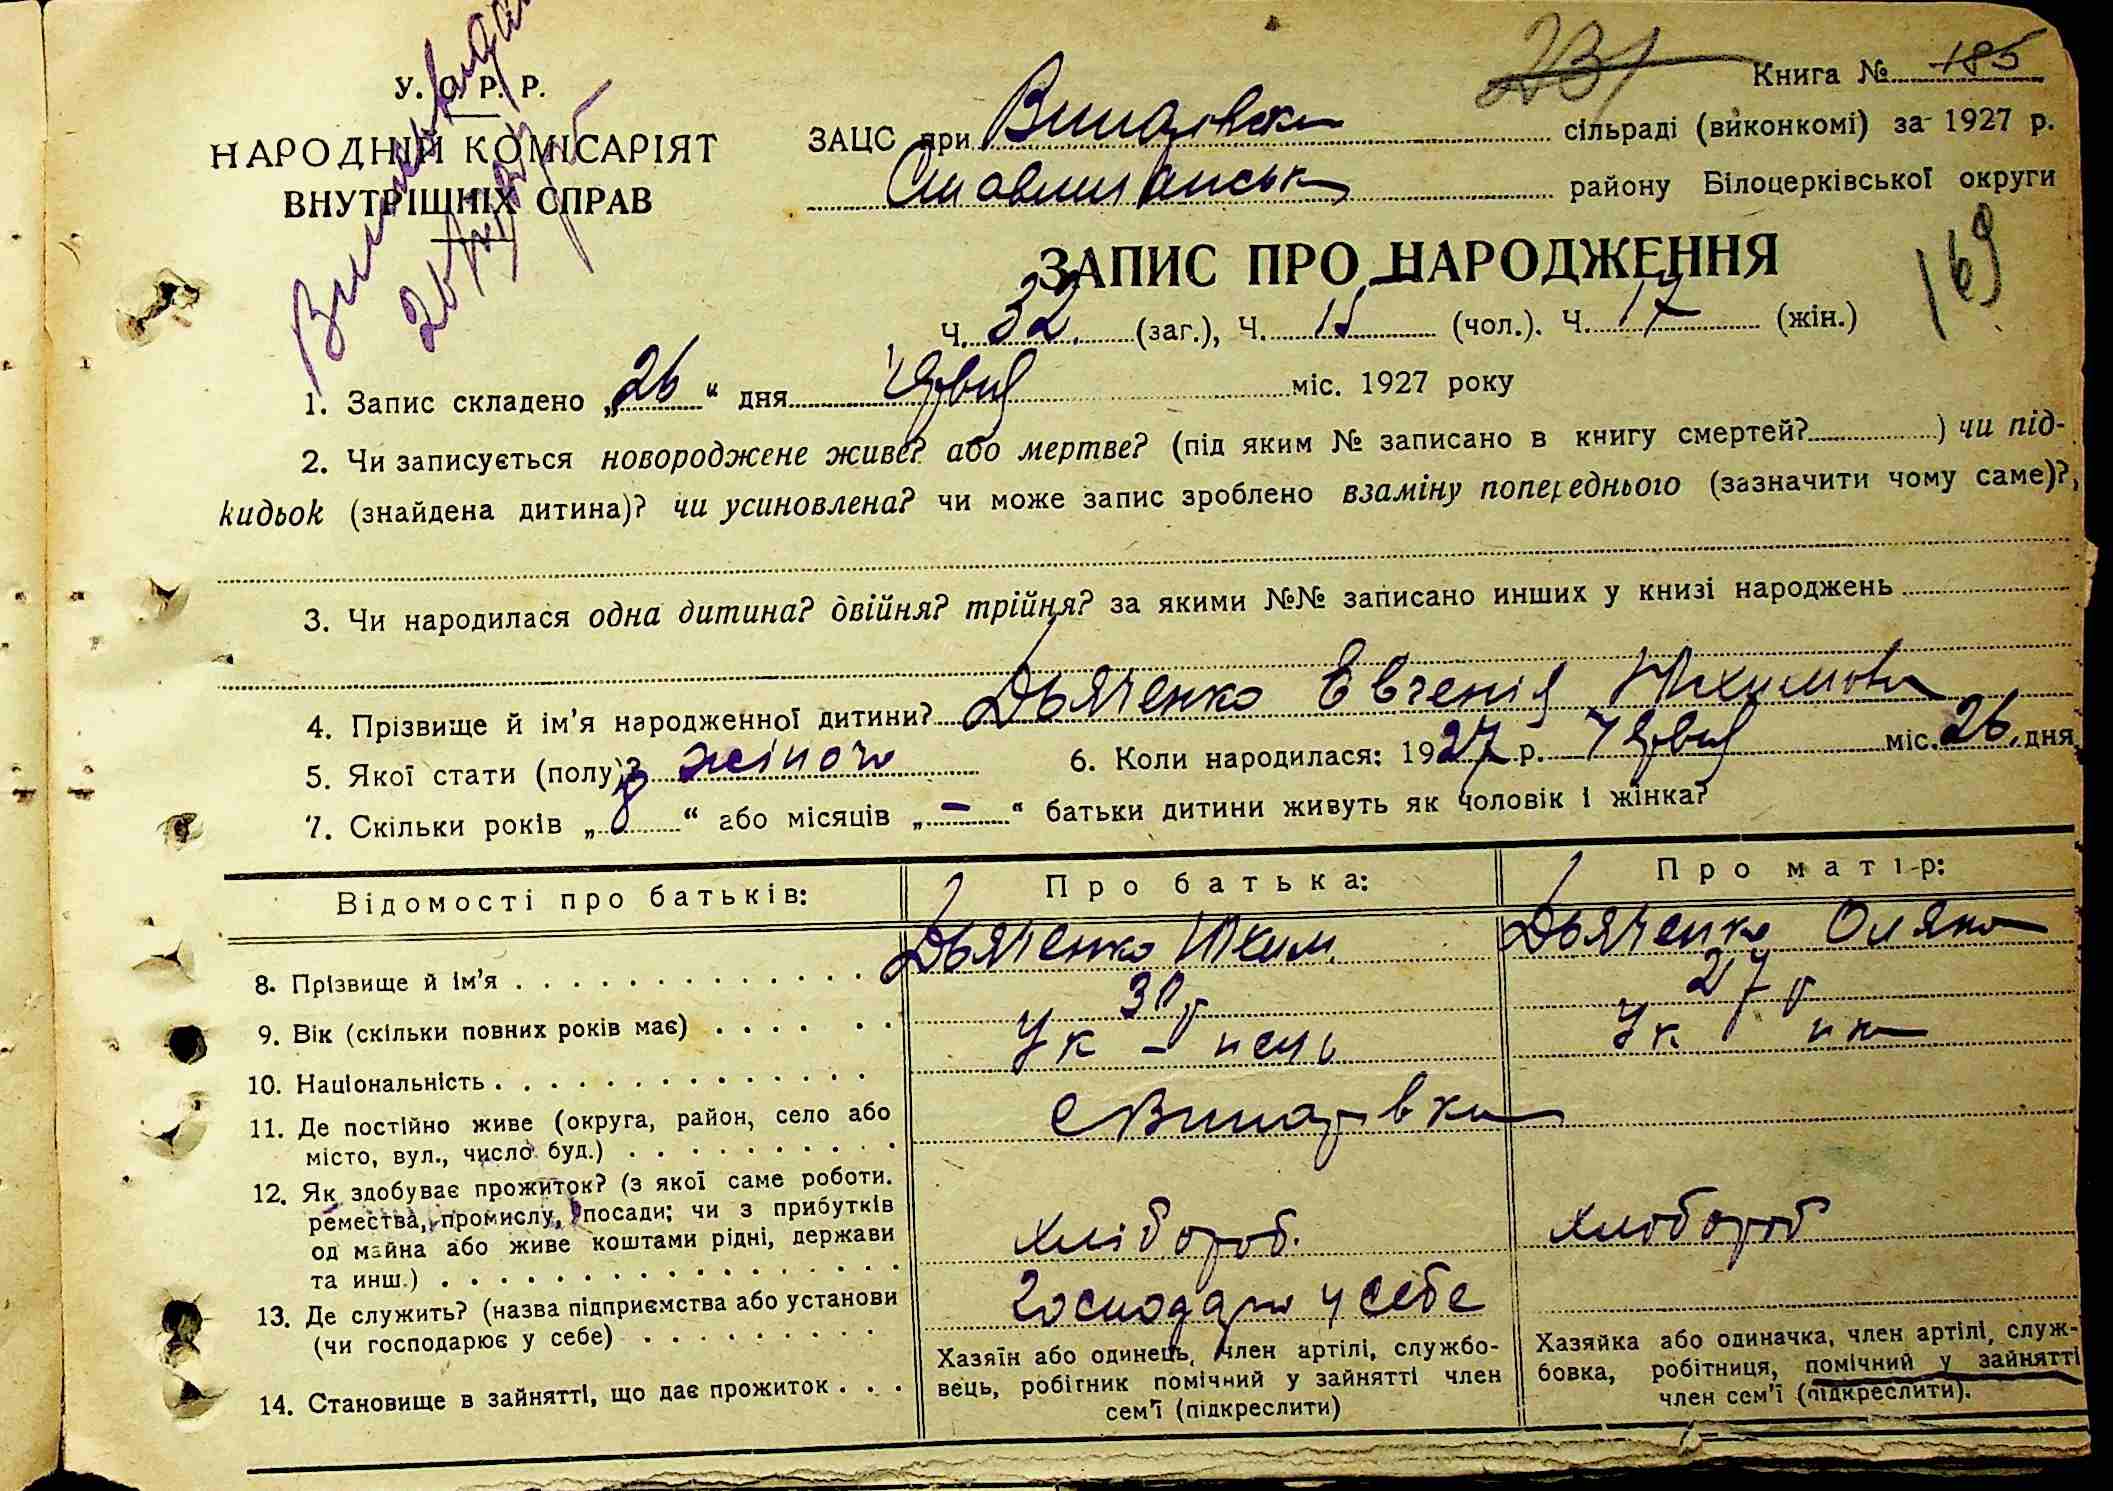 У. С. Р. Р.
НАРОДНІЙ КОМІСАРІЯТ
ВНУТРІШНІХ СПРАВ
231
Книга № 185
ЗАЦС при сільраді (виконкомі) за 1927 р.
району Білоцерківської округи
ЗАПИС ПРО НАРОДЖЕННЯ
169
Ч. 32 (заг.), Ч. 15 (чол.). Ч. 17 (жін.)
1. Запис складено „26“ дня червня міс. 1927 року
2. Чи записується новороджене живе? або мертве? (під яким № записано в книгу смертей?) чи під-
кидьок (знайдена дитина)? чи усиновлена? чи може запис зроблено взаміну попереднього (зазначити чому саме)?,
3. Чи народилася одна дитина? двійня? трійня? за якими №№ записано инших у книзі народжень
4. Прізвище й ім'я народженної дитини? Дьяченко Евгенія Юхимовна
5. Якої стати (полу)? жіноч 6. Коли народилася: 1927 р. червня міс. 26 дня
7. Скільки років „8“ або місяців „–“ батьки дитини живуть як чоловік і жінка?
Відомості про батьків: Про батька: Про матір:
8. Прізвище й ім'я Дьяченко Юхим. Дьяченко Оляна
9. Вік (скільки повних років має) 30 р 27 р
10. Національність Ук – нець Ук нка
11. Де постійно живе (округа, район, село або
місто, вул., число буд.)
12. Як здобуває прожиток? (з якої саме роботи.
ремества, промислу, посади; чи з прибутків
од майна або живе коштами рідні, держави
та инш.) хлібороб. хлібороб
13. Де служить? (назва підприємства або установи
(чи господарює у себе) господарю у себе
14. Становище в зайнятті, що дає прожиток
Хазяїн або одинець, член артілі, службо-
вець, робітник помічний у зайнятті член
сем'ї (підкреслити)
Хазяйка або одиначка, член артілі, служ-
бовка, робітниця, помічний у зайнятті
член сем'ї (підкреслити).